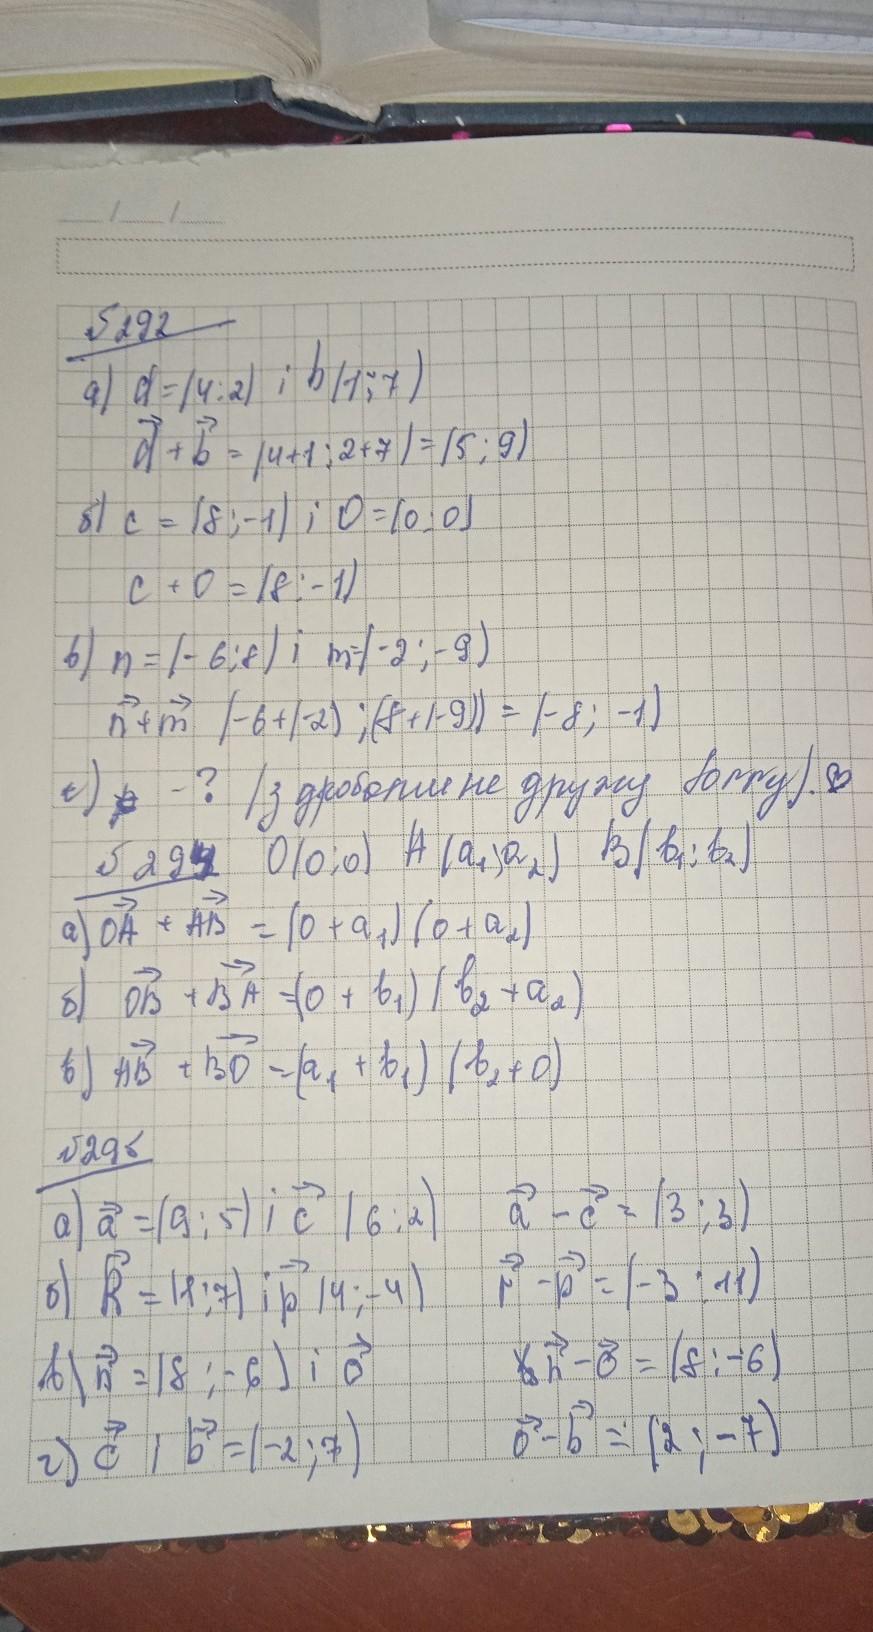 №292
а) d=(4;2) і b(1;7)
d+b=(4+1;2+7)=(5;9)
б) c=(8;-1) і 0=(0;0)
c+0=(8;-1)
в) n=(-6;8) і m=(-2;-9)
n+m (-6+(-2);(8+(-9))=(-8;-1)
-? (з дробопи не дружу
№294 O(0;0) A(a₁;a₂) B(b₁;b₂)
а) OA+AB=(0+a₁)(0+a₂)
б) OB+BA=(0+b₁)(b₂+a₂)
в) AB+BO=(a₁+b₁)(b₂+0)
а) a=(9;5) і c (6;2) a-c=(3;3)
б) R=(1;7) і p(4;-4) r-p=(-3;11)
в) n=(8;-6) і o n-o=(8;-6)
г) c і b=(-2;7) o-b=(2;-7)